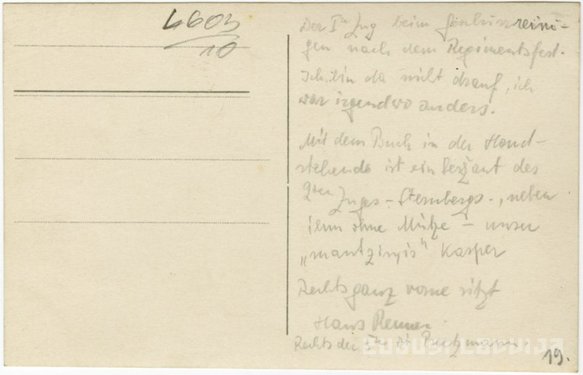 4603/10
Der I te Zug beim reini-
gen nach dem Regimentsfest.
Ich bin da nicht drauf, ich
war irgendwo anders.
Mit dem Buch in der Hand-
stehende ist ein Serzant des
2ten Zuges - Sternbergs-, neben
ihm ohne Mütze - unser
Kasper
Rechts ganz vorne sitzt
Hans
Rechts der
19.